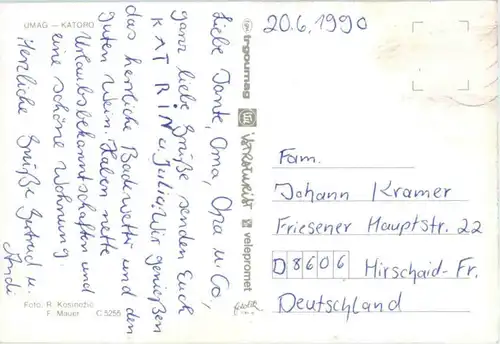 UMAG — KATORO
20.6.1990
Liebe Tante, Oma, Opa u. Co,
ganz liebe Grüße senden Euch
KATRIN u. Julia. Wir genießen
das herrliche Badewetter und den
guten Wein. Haben nette
Urlaubsbekanntschaften und
eine schöne Wohnung.
Herzliche Grüße Gertrud u.
Andi
Foto: R. Kosinožić
F. Mauer C 5255
trgoumag
velepromet
Fam.
Johann Kramer
Friesener Hauptstr. 22
D8606 Hirschaid-Fr.
Deutschland